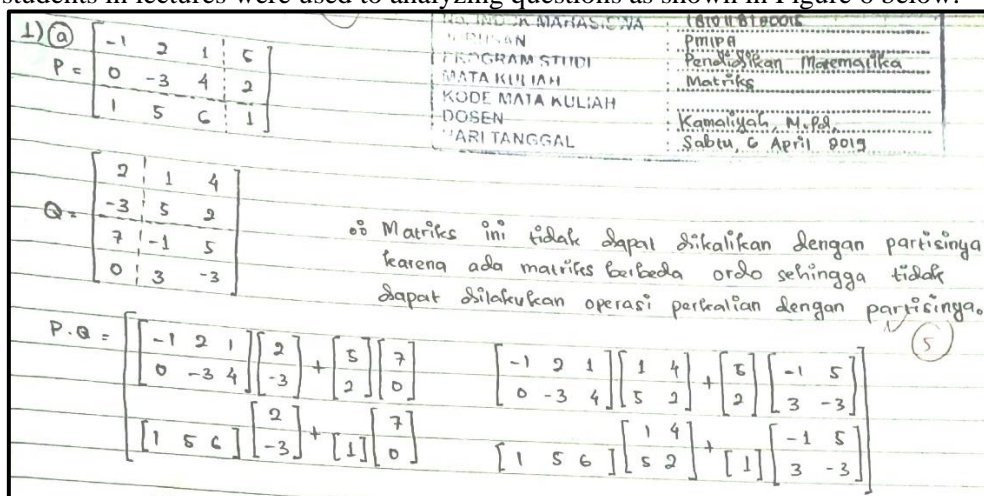 students in lectures were used to analyzing questions as shown in Figure 6 below.
NO. INDUK MAHASISWA : 1810118180015
JURUSAN : PMIPA
PROGRAM STUDI : Pendidikan Matematika
MATA KULIAH : Matriks
KODE MATA KULIAH :
DOSEN : Kamaliyah, M.Pd.
HARI TANGGAL : Sabtu, 6 April 2019
1) a
P = [ -1 2 1 5
0 -3 4 2
1 5 6 1 ]
Q = [ 2 1 4
-3 5 2
7 -1 5
0 3 -3 ]
∴ Matriks ini tidak dapat dikalikan dengan partisinya
karena ada matriks berbeda ordo sehingga tidak
dapat dilakukan operasi perkalian dengan partisinya.
5
P.Q = [ [ -1 2 1 ] [ 2 ] + [ 5 ] [ 7 ] [ -1 2 1 ] [ 1 4 ] + [ 5 ] [ -1 5 ]
[ 0 -3 4 ] [ -3 ] [ 2 ] [ 0 ] [ 0 -3 4 ] [ 5 2 ] [ 2 ] [ 3 -3 ]
[ 1 5 6 ] [ 2 ] + [ 1 ] [ 7 ] [ 1 5 6 ] [ 1 4 ] + [ 1 ] [ -1 5 ]
[ -3 ] [ 0 ] [ 5 2 ] [ 3 -3 ] ]